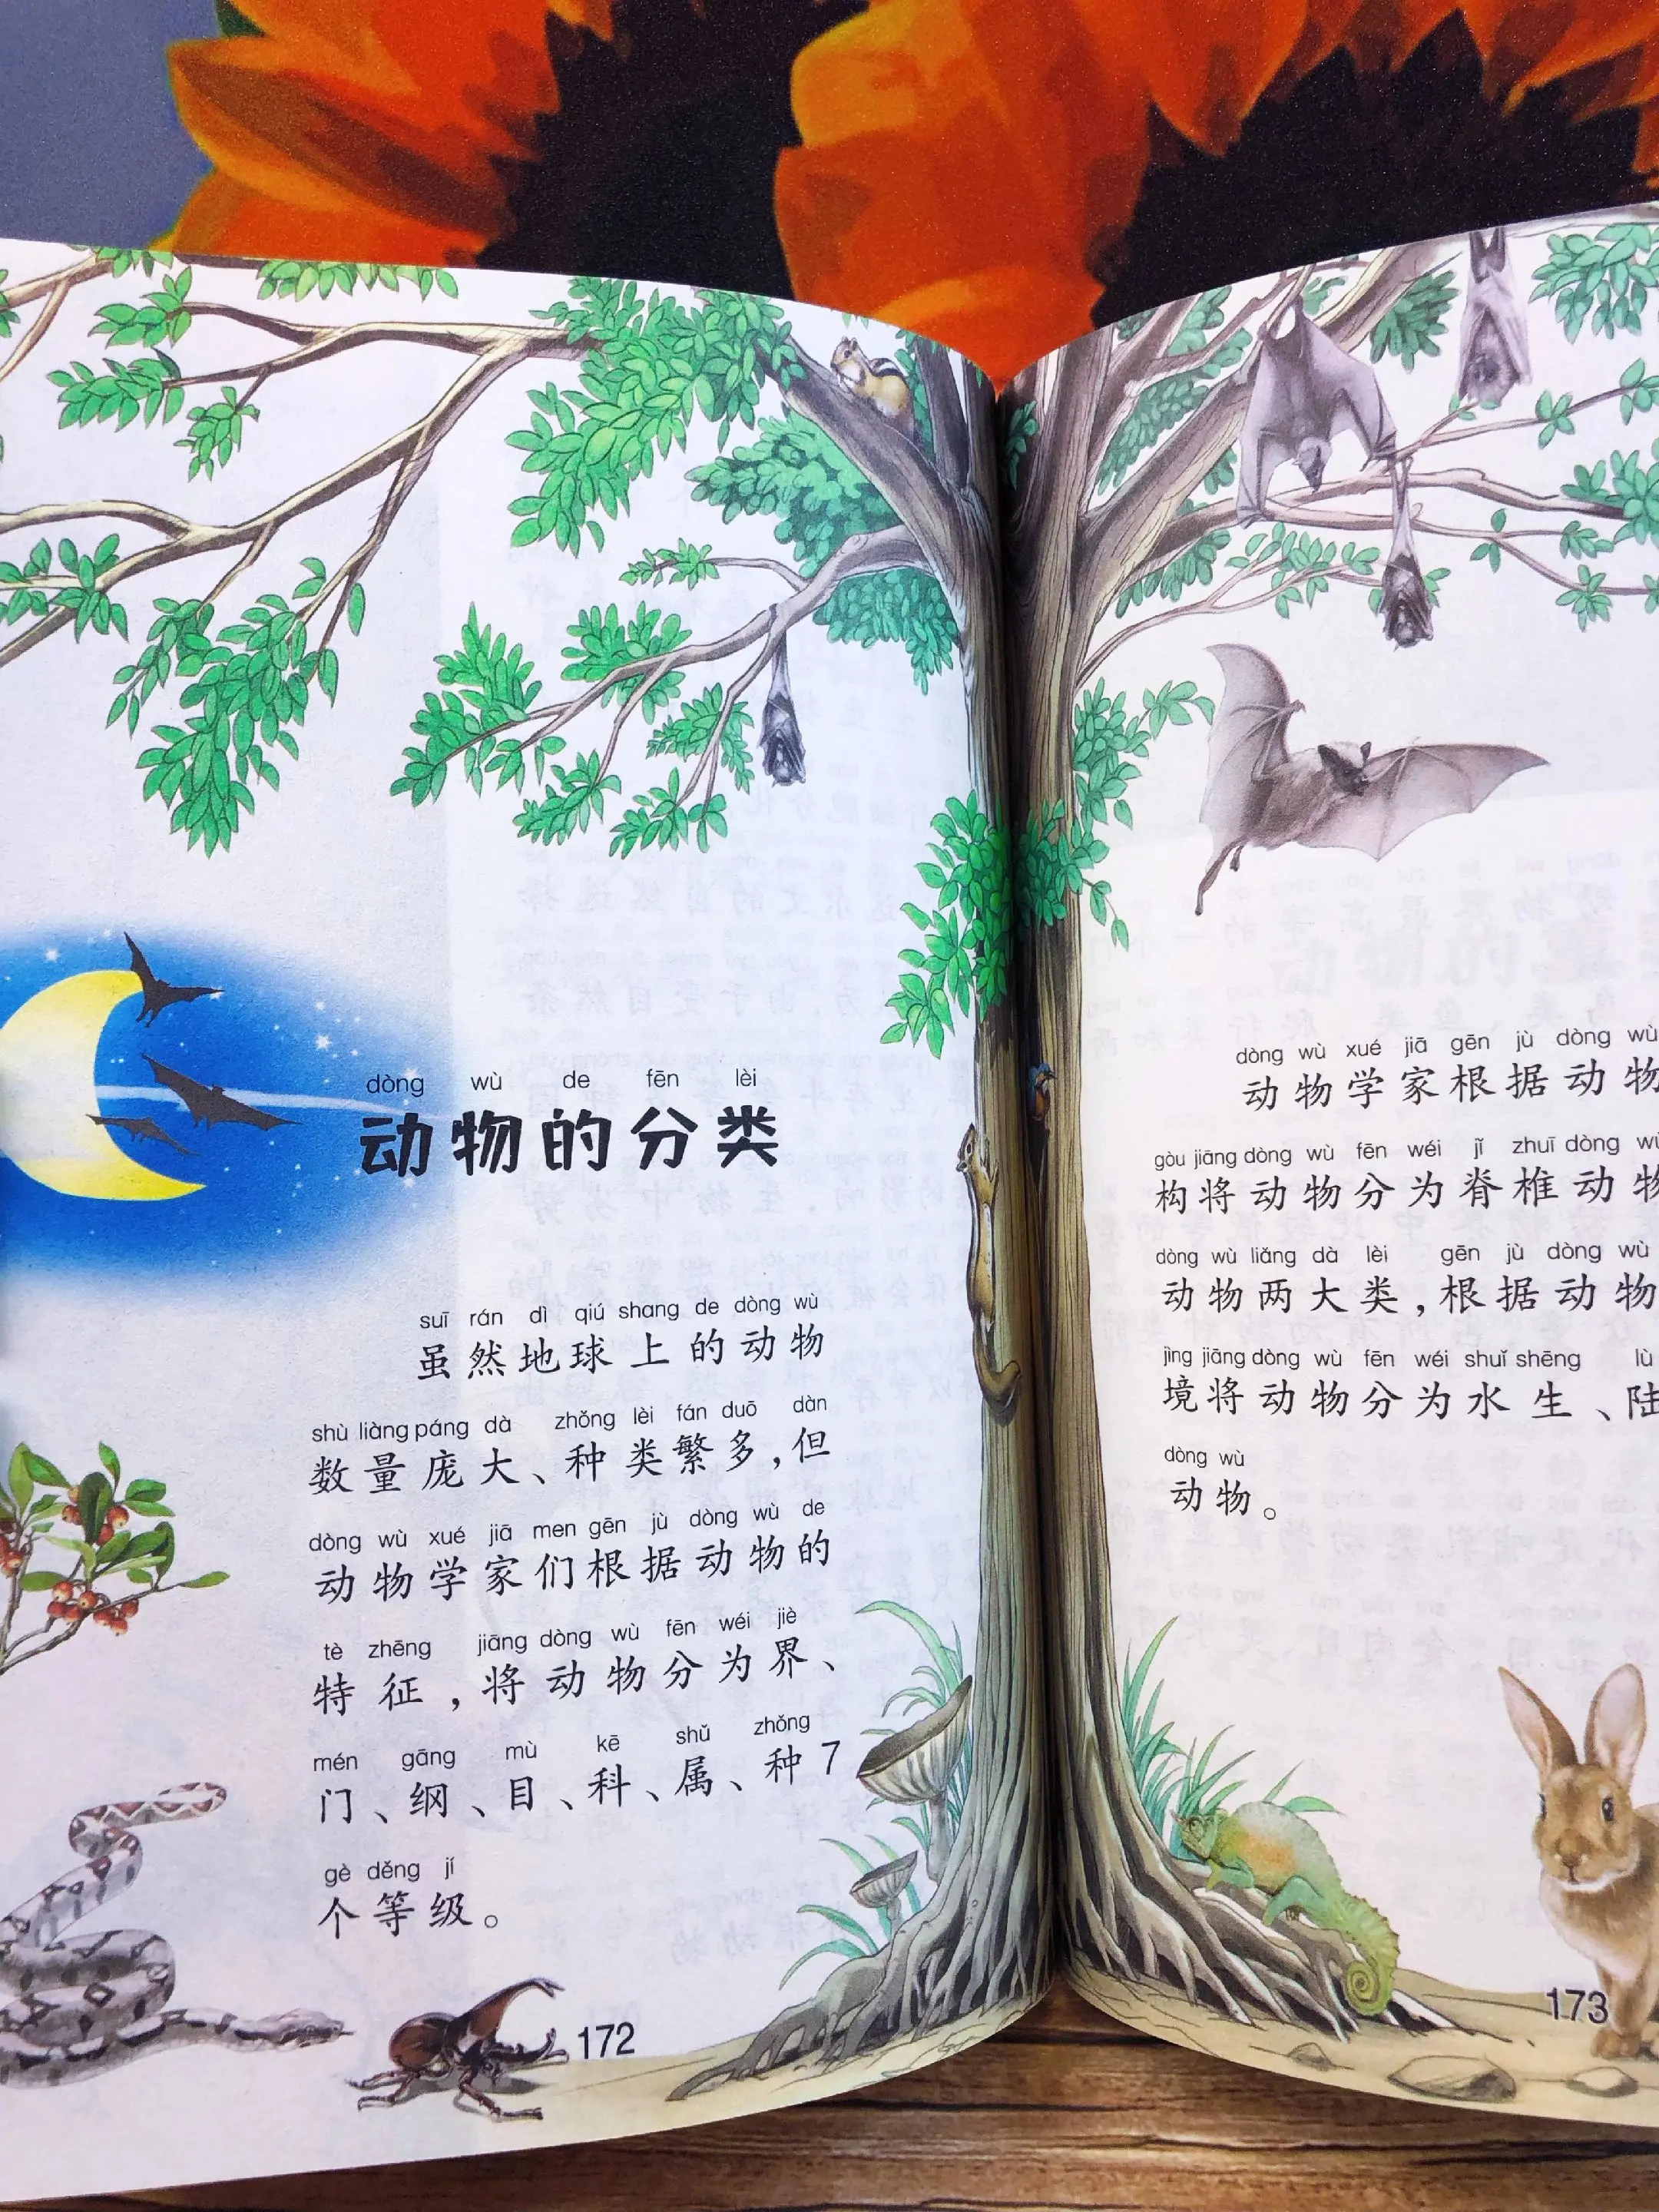 dòng wù de fēn lèi
动物的分类
suī rán dì qiú shang de dòng wù
虽然地球上的动物
shù liàng páng dà zhǒng lèi fán duō dàn
数量庞大、种类繁多，但
dòng wù xué jiā men gēn jù dòng wù de
动物学家们根据动物的
tè zhēng jiāng dòng wù fēn wéi jiè
特征，将动物分为界、
mén gāng mù kē shǔ zhǒng
门、纲、目、科、属、种7
gè děng jí
个等级。
172
dòng wù xué jiā gēn jù dòng wù
动物学家根据动物
gòu jiāng dòng wù fēn wéi jǐ zhuī dòng wù
构将动物分为脊椎动物
dòng wù liǎng dà lèi gēn jù dòng wù
动物两大类，根据动物
jìng jiāng dòng wù fēn wéi shuǐ shēng lù
境将动物分为水生、陆
dòng wù
动物。
173